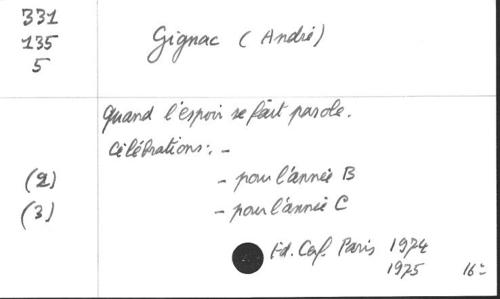 331
135
5
Gignac (André)
Quand l'espoir se fait parole.
Célébrations: -
(2) - pour l'année B
(3) - pour l'année C
Ed. Cerf. Paris 1974
1975 16=